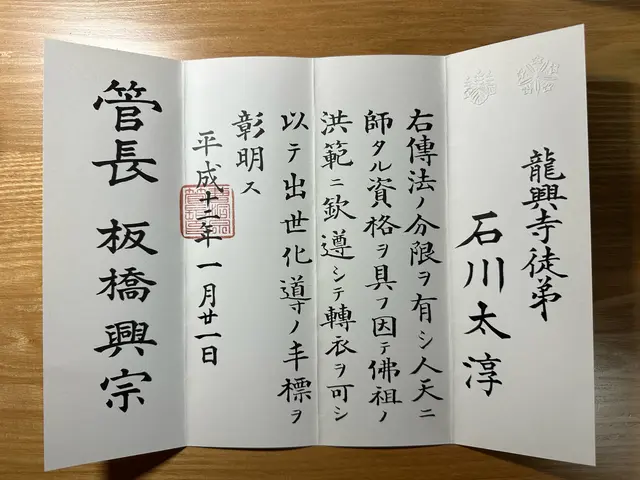 龍興寺徒弟
石川太淳
右傳法ノ分限ヲ有シ人天ニ
師タル資格ヲ具フ因テ佛祖ノ
洪範ニ欽遵シテ轉衣ヲ可シ
以テ出世化導ノ丰標ヲ
彰明ス
平成十二年一月廿一日
管長 板橋興宗